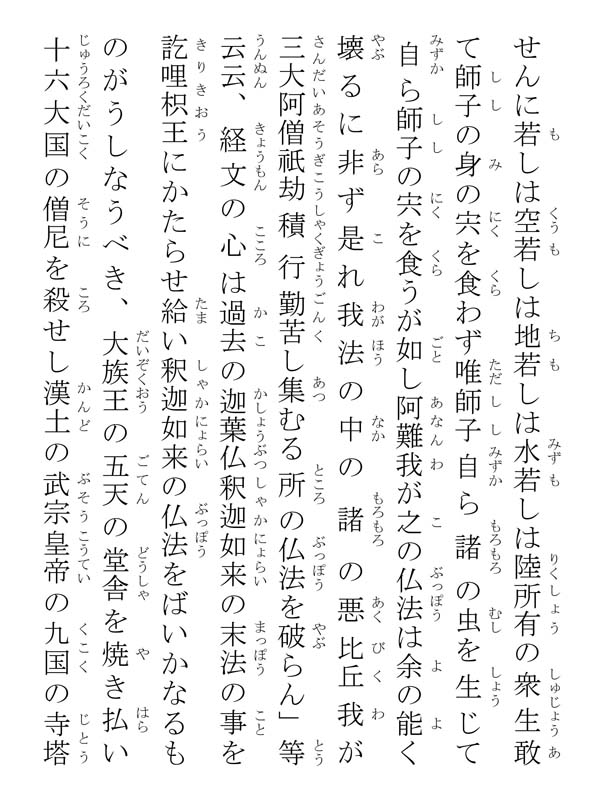 せんに若しは空若しは地若しは水若しは陸所有の衆生敢
て師子の身の宍を食わず唯師子自ら諸の虫を生じて
自ら師子の宍を食うが如し阿難我が之の仏法は余の能く
壊るに非ず是れ我法の中の諸の悪比丘我が
三大阿僧祇劫積行勤苦し集むる所の仏法を破らん」等
云云、経文の心は過去の迦葉仏釈迦如来の末法の事を
訖哩枳王にかたらせ給い釈迦如来の仏法をばいかなるも
のがうしなうべき、大族王の五天の堂舎を焼き払い
十六大国の僧尼を殺せし漢土の武宗皇帝の九国の寺塔